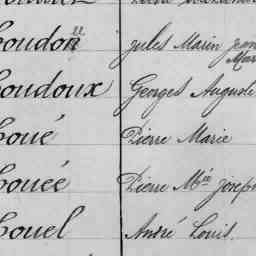 oudon ll Jules Marin Jean
Mar
oudoux Georges Auguste
oué Pierre Marie
ouée Pierre Mie Joseph
ouel André Louis.